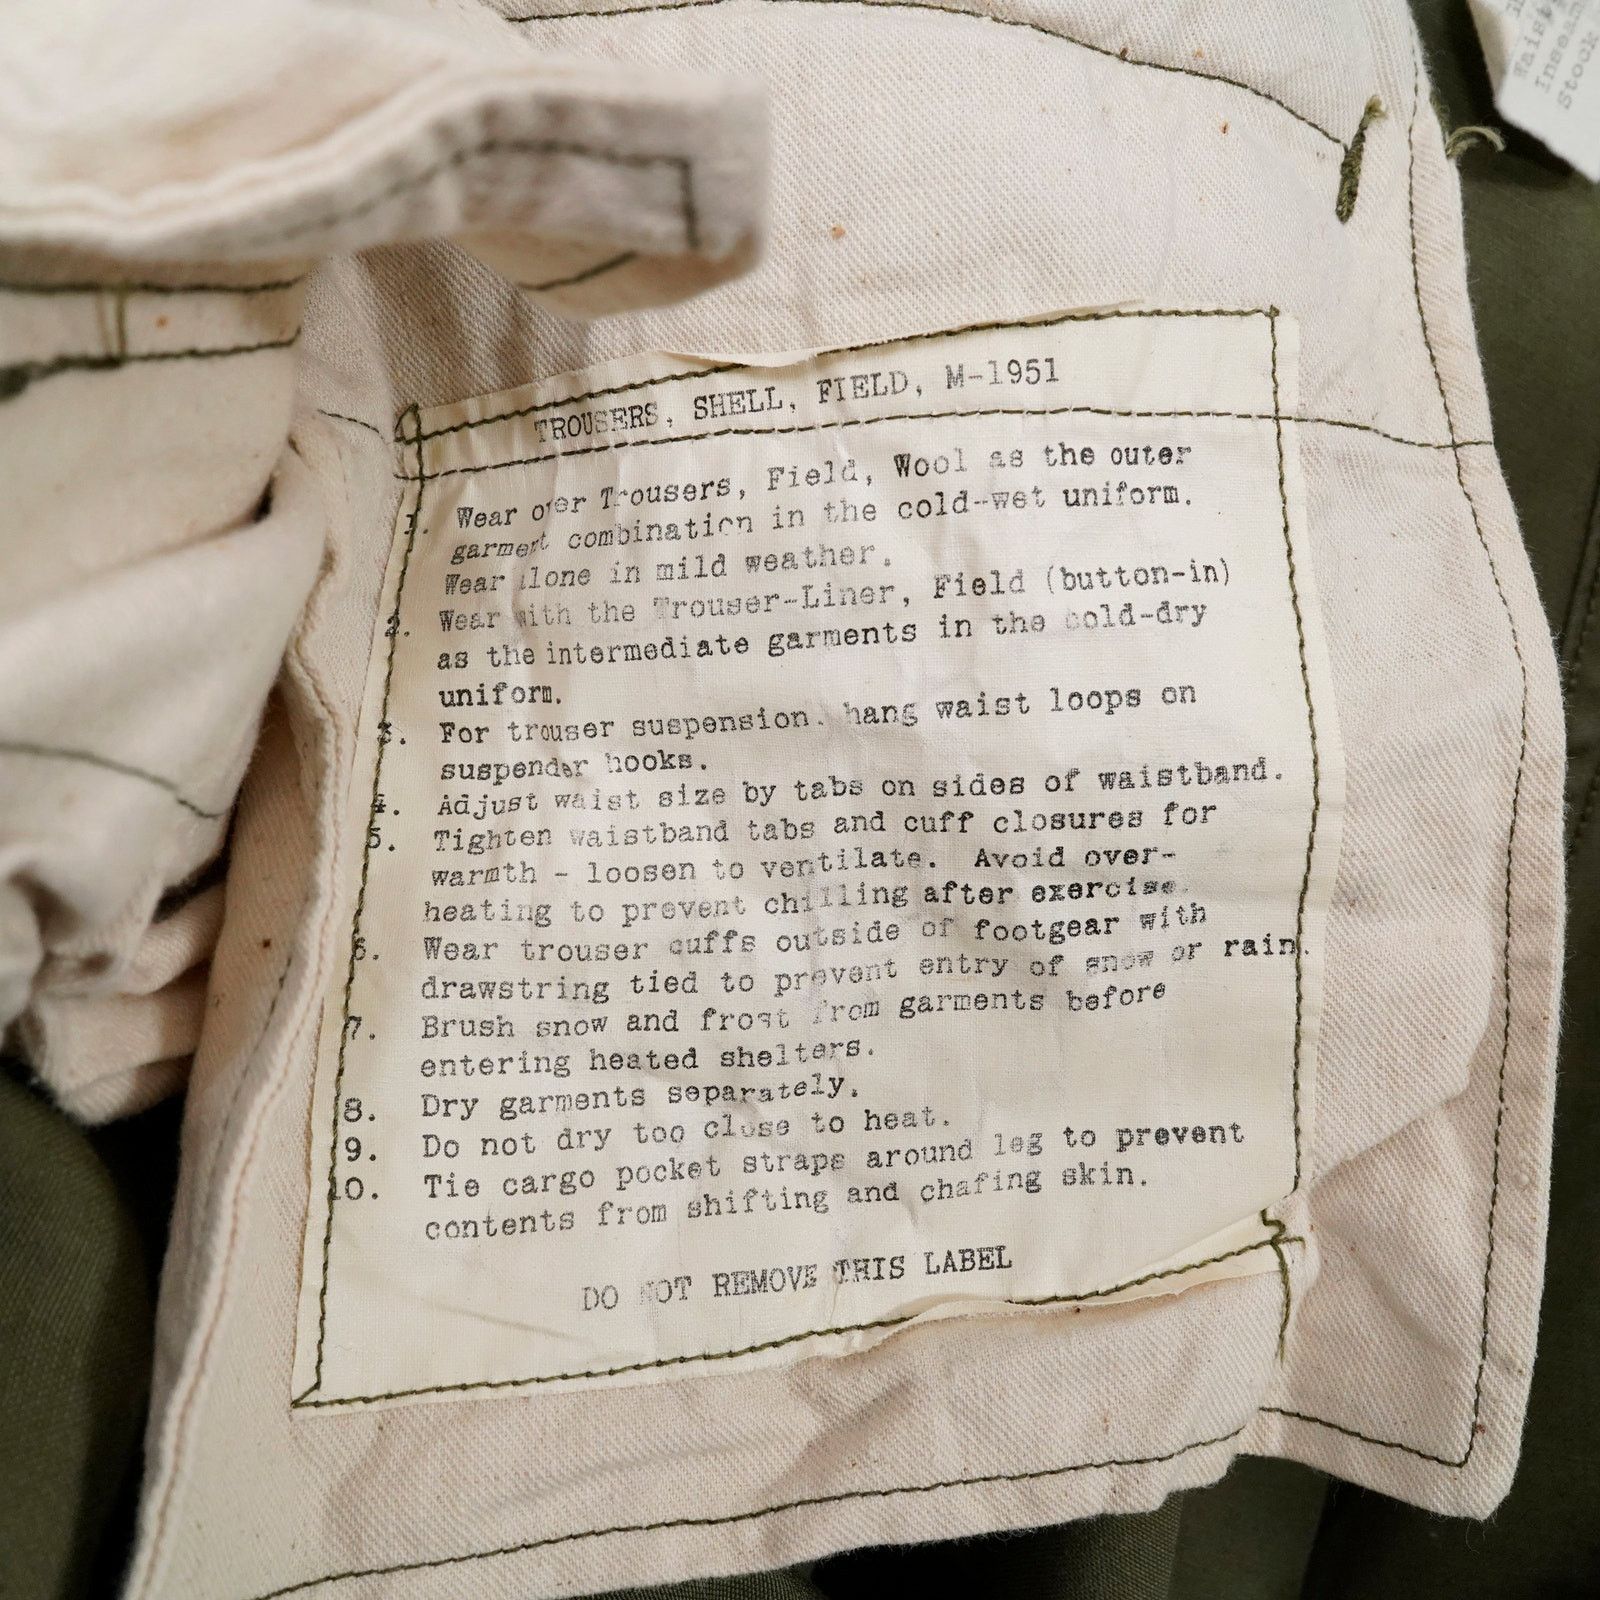 Wais
Inseam
Stock
TROUSERS, SHELL, FIELD, M-1951
1. Wear over Trousers, Field, Wool as the outer
garment combination in the cold-wet uniform.
Wear alone in mild weather.
2. Wear with the Trouser-Liner, Field (button-in)
as the intermediate garments in the cold-dry
uniform.
3. For trouser suspension. hang waist loops on
suspender hooks.
4. Adjust waist size by tabs on sides of waistband.
5. Tighten waistband tabs and cuff closures for
warmth - loosen to ventilate. Avoid over-
heating to prevent chilling after exercise.
6. Wear trouser cuffs outside of footgear with
drawstring tied to prevent entry of snow or rain.
7. Brush snow and frost from garments before
entering heated shelters.
8. Dry garments separately.
9. Do not dry too close to heat.
10. Tie cargo pocket straps around leg to prevent
contents from shifting and chafing skin.
DO NOT REMOVE THIS LABEL